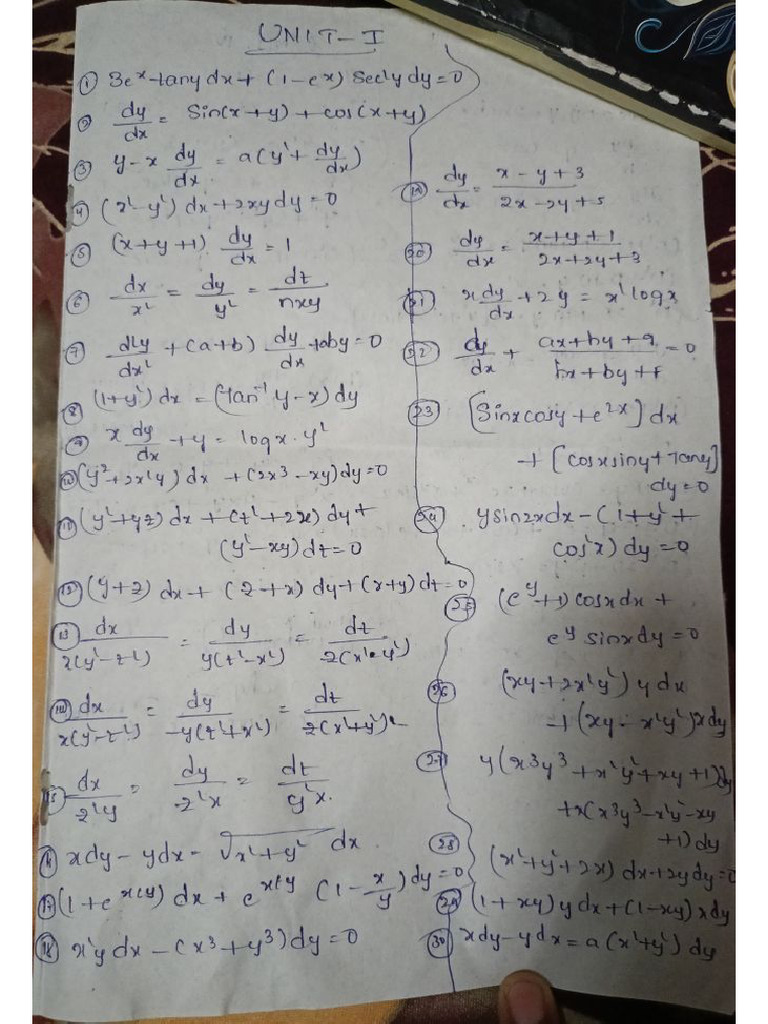 UNIT-I
① 3eˣ tany dx + (1-eˣ) Sec²y dy = 0
② dy/dx = Sin(x+y) + cos(x+y)
③ y-x dy/dx = a(y² + dy/dx)
④ (x²-y²) dx + 2xy dy = 0
⑤ (x+y+1) dy/dx = 1
⑥ dx/x² = dy/y² = dz/nxy
⑦ d²y/dx² + (a+b) dy/dx + aby = 0
⑧ (1+y²) dx = (tan⁻¹ y - x) dy
⑨ x dy/dx + y = logx. y²
⑩ (y² + 2x²y) dx + (2x³ - xy) dy = 0
⑪ (y² + yz) dx + (z² + zx) dy +
(y² - xy) dz = 0
⑫ (y+z) dx + (z+x) dy + (x+y) dz = 0
⑬ dx/x(y²-z²) = dy/y(z²-x²) = dz/z(x²-y²)
⑭ dx/x(y²-z²) = dy/-y(z²+x²) = dz/z(x²+y²)
⑮ dx/z²y = dy/z²x = dz/y²x.
⑯ xdy - ydx = √x²+y² dx
⑰ (1+e^x/y) dx + e^x/y (1 - x/y) dy = 0
⑱ x²y dx - (x³+y³) dy = 0
⑲ dy/dx = x-y+3/2x-2y+5
⑳ dy/dx = x+y+1/2x+2y+3
㉑ x dy/dx + 2y = x² logx
㉒ dy/dx + ax+hy+g/hx+by+f = 0
㉓ [Sinx cosy + e²ˣ] dx
+ [cosx siny + Tany]
dy = 0
㉔ ysin2x dx - (1+y²+
cos²x) dy = 0
㉕ (eʸ+1) cosx dx +
eʸ sinx dy = 0
㉖ (xy+2x²y²) y dx
+ (xy - x²y²) x dy
㉗ y(x³y³ + x²y² + xy + 1) dx
+ x(x³y³ - x²y² - xy
+1) dy
㉘ (x²+y²+2x) dx + 2y dy = 0
㉙ (1+xy) y dx + (1-xy) x dy
㉚ xdy - ydx = a(x²+y²) dy